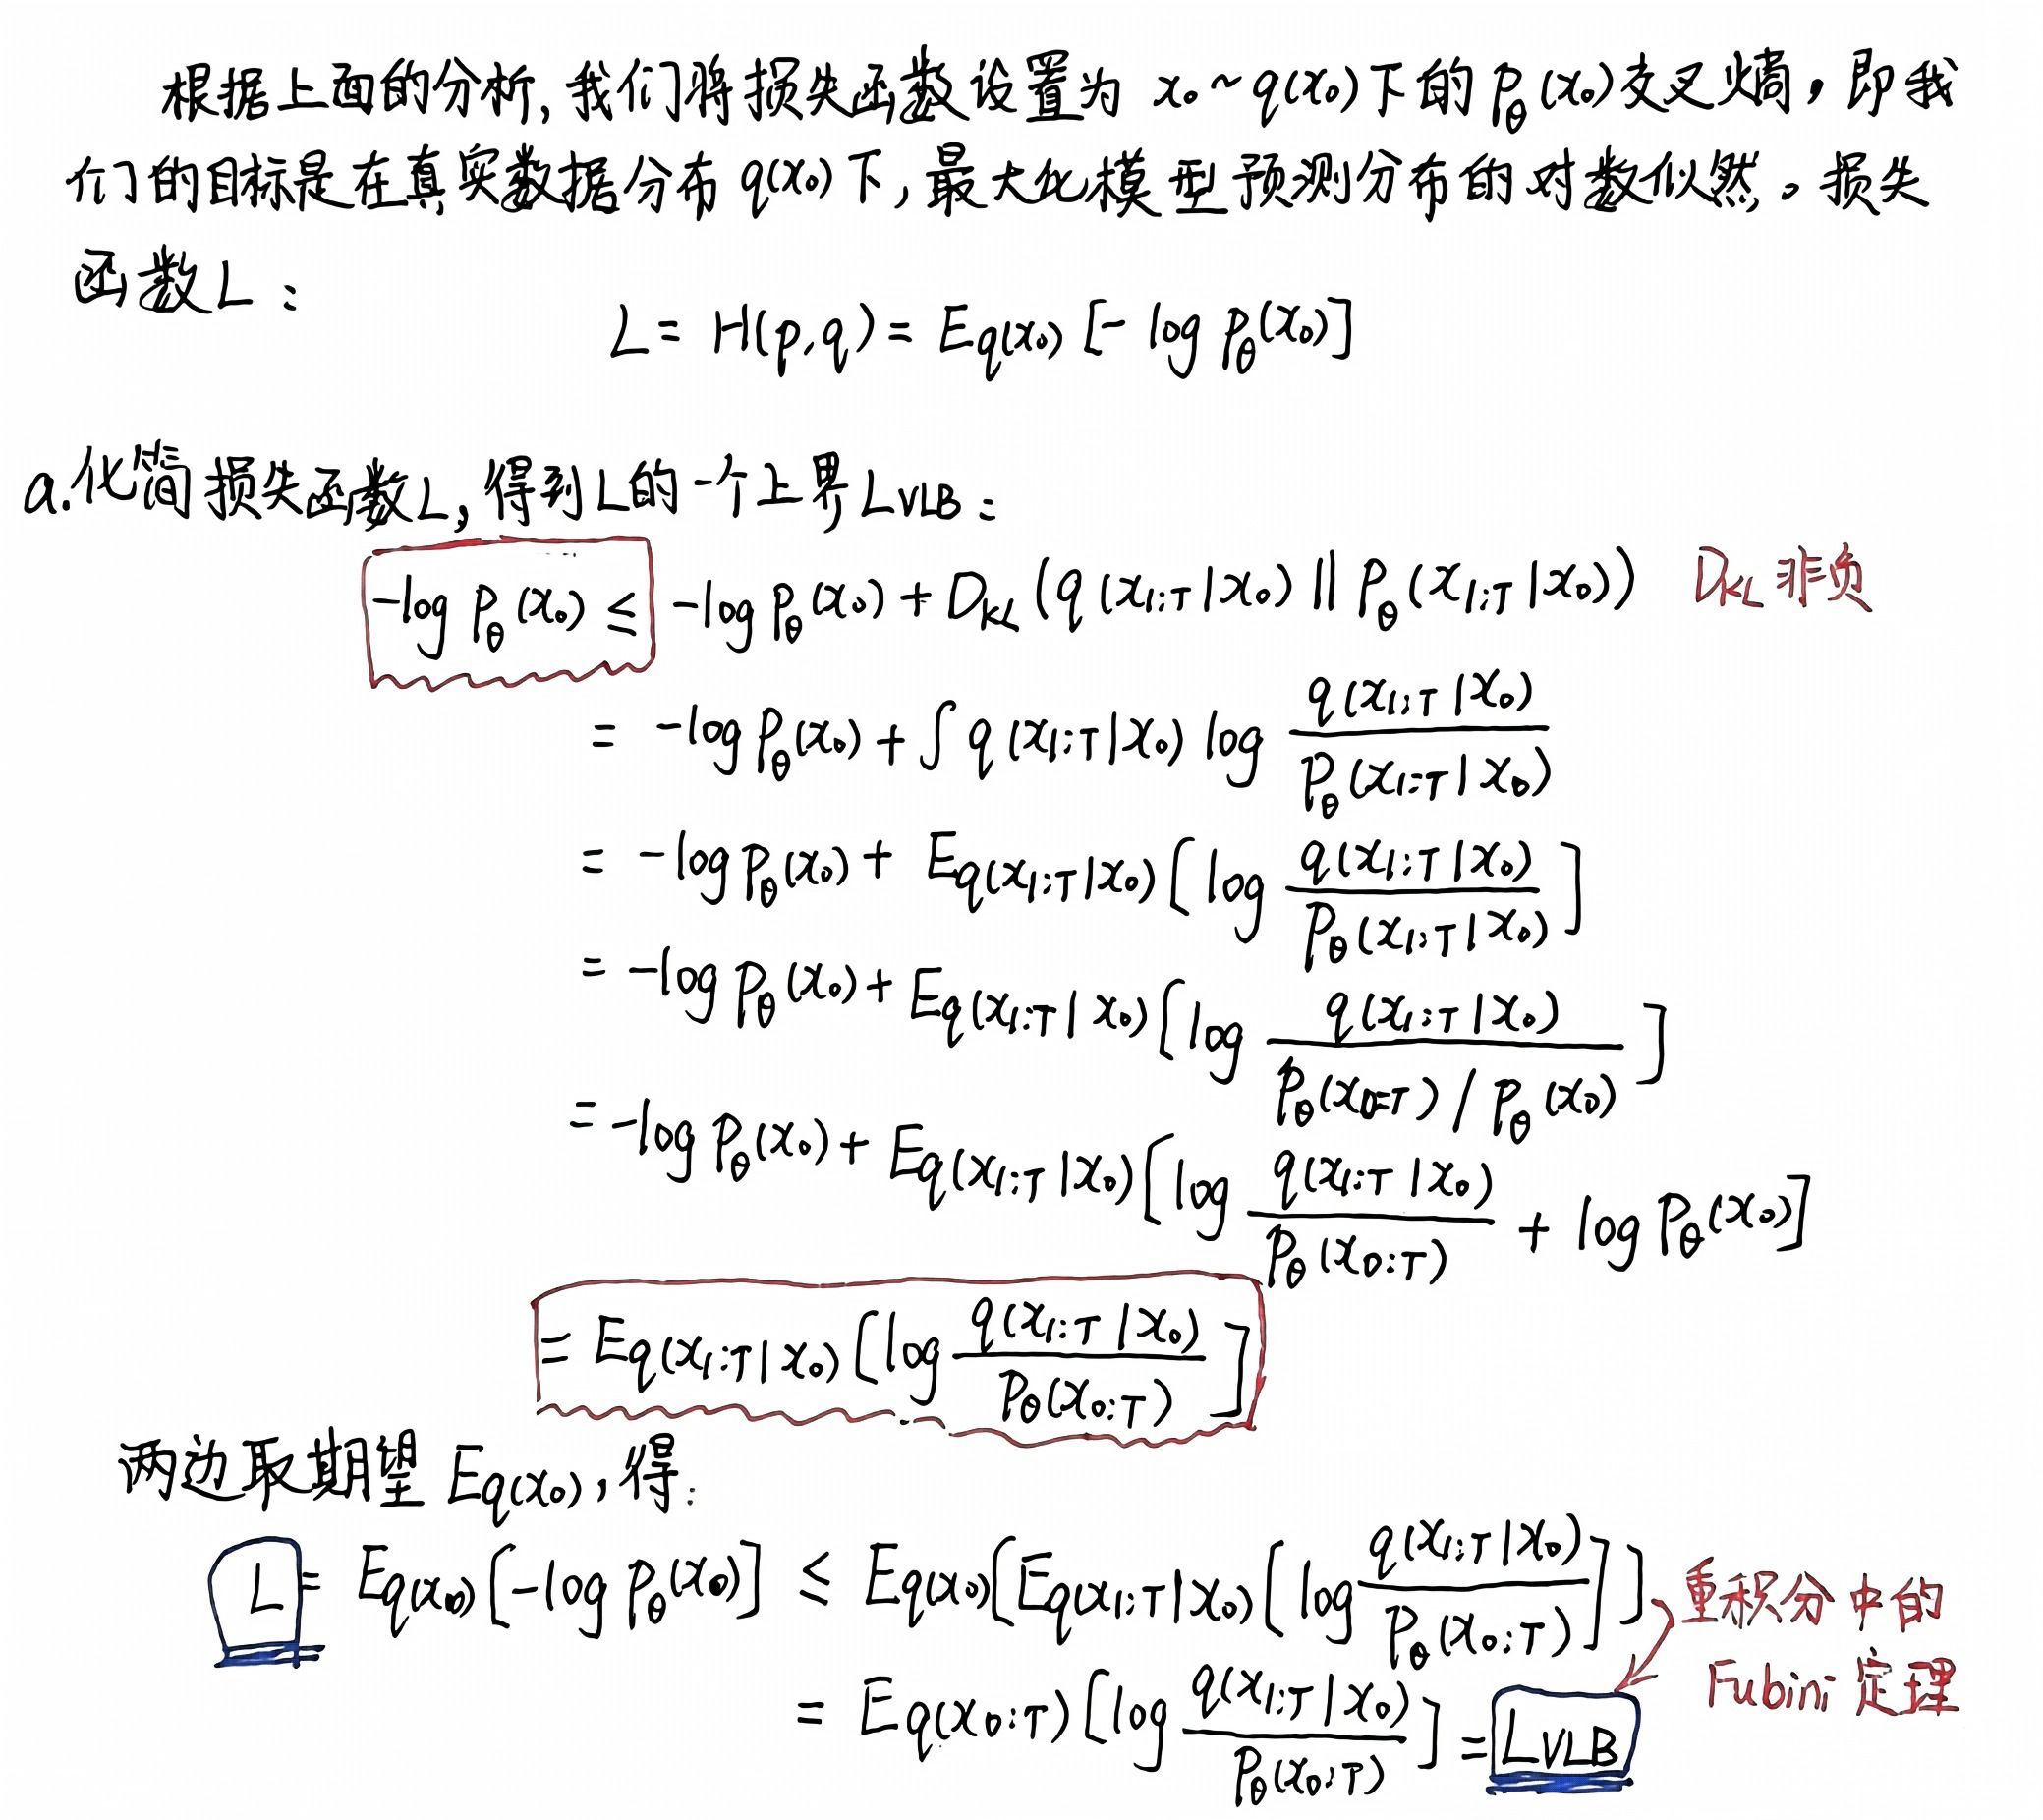 根据上面的分析,我们将损失函数设置为 x₀~q(x₀)下的 p_θ(x₀)交叉熵,即我
们的目标是在真实数据分布 q(x₀)下,最大化模型预测分布的对数似然。损失
函数L:
L = H(p,q) = E_{q(x₀)} [- log p_θ(x₀)]
a.化简损失函数L,得到L的一个上界L_{VLB}:
-log p_θ(x₀) ≤ -log p_θ(x₀) + D_{KL}(q(x_{1:T}|x₀) || p_θ(x_{1:T}|x₀)) D_{KL}非负
= -log p_θ(x₀) + ∫ q(x_{1:T}|x₀) log \frac{q(x_{1:T}|x₀)}{p_θ(x_{1:T}|x₀)}
= -log p_θ(x₀) + E_{q(x_{1:T}|x₀)} [log \frac{q(x_{1:T}|x₀)}{p_θ(x_{1:T}|x₀)}]
= -log p_θ(x₀) + E_{q(x_{1:T}|x₀)} [log \frac{q(x_{1:T}|x₀)}{p_θ(x_{0:T}) / p_θ(x₀)}]
= -log p_θ(x₀) + E_{q(x_{1:T}|x₀)} [log \frac{q(x_{1:T}|x₀)}{p_θ(x_{0:T})} + log p_θ(x₀)]
= E_{q(x_{1:T}|x₀)} [log \frac{q(x_{1:T}|x₀)}{p_θ(x_{0:T})}]
两边取期望 E_{q(x₀)},得:
L = E_{q(x₀)} [-log p_θ(x₀)] ≤ E_{q(x₀)} [E_{q(x_{1:T}|x₀)} [log \frac{q(x_{1:T}|x₀)}{p_θ(x_{0:T})}]] 重积分中的
Fubini 定理
= E_{q(x_{0:T})} [log \frac{q(x_{1:T}|x₀)}{p_θ(x_{0:T})}] = L_{VLB}